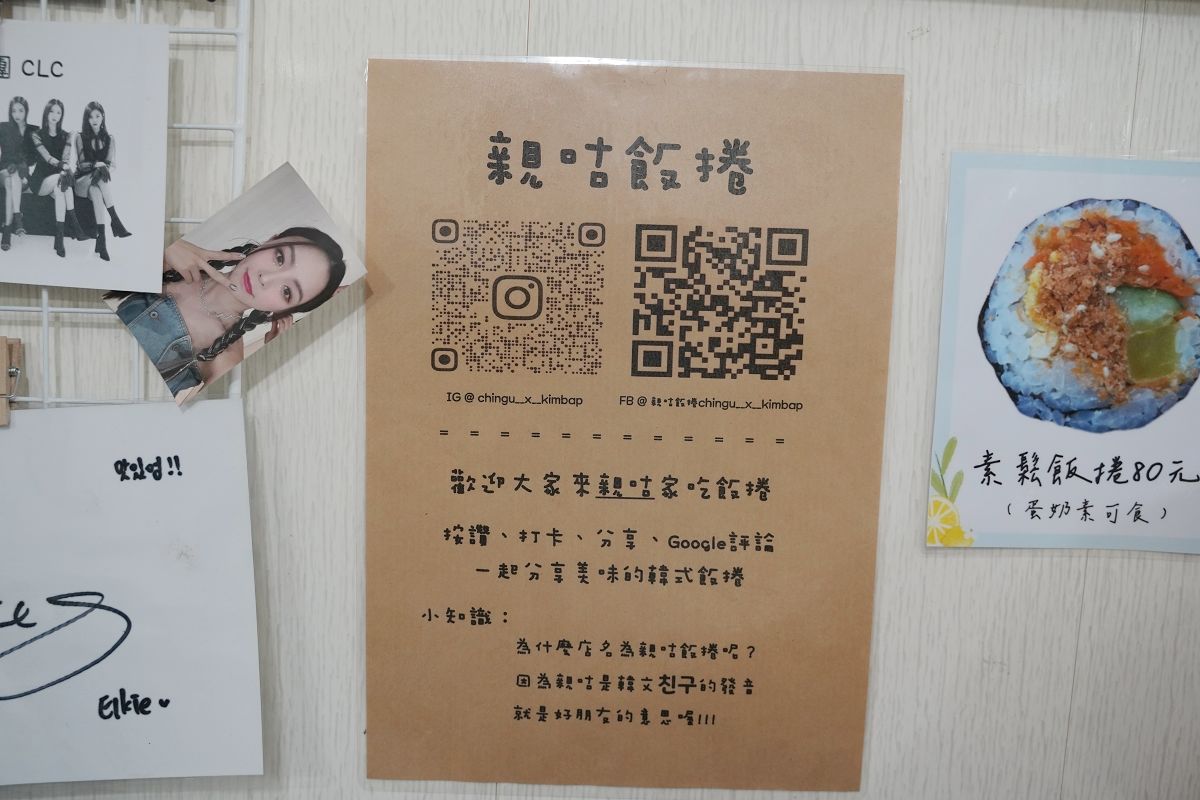 團 CLC
맛있엉!!
Elkie
親咕飯捲
IG @ chingu__x__kimbap
FB @ 親咕飯捲chingu__x__kimbap
= = = = = = = = = = = =
歡迎大家來親咕家吃飯捲
按讚、打卡、分享、Google評論
一起分享美味的韓式飯捲
小知識：
為什麼店名為親咕飯捲呢？
因為親咕是韓文친구的發音
就是好朋友的意思喔!!!
素鬆飯捲80元
（蛋奶素可食）